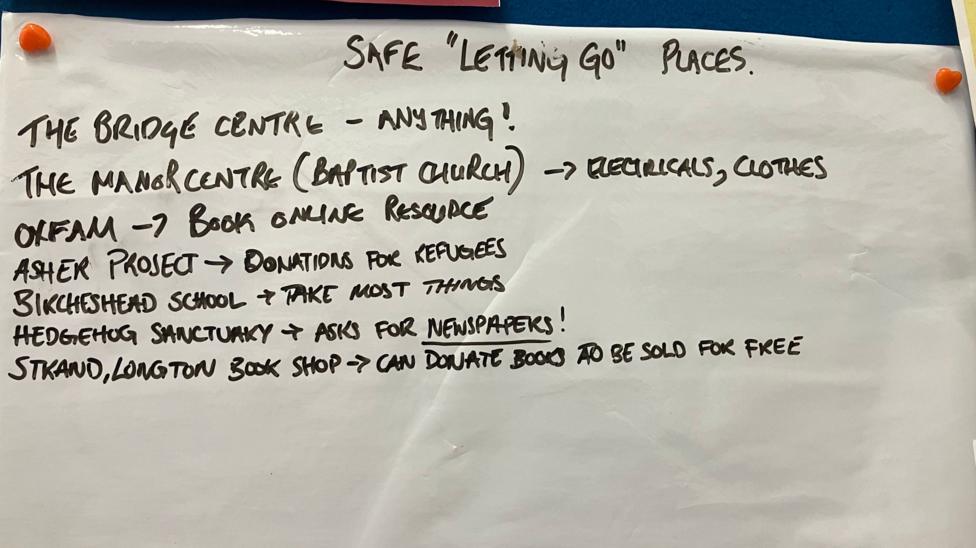 SAFE "LETTING GO" PLACES.
THE BRIDGE CENTRE - ANYTHING!
THE MANOR CENTRE (BAPTIST CHURCH) → ELECTRICALS, CLOTHES
OXFAM → BOOK ONLINE RESOURCE
ASHER PROJECT → DONATIONS FOR REFUGEES
BIRCHESHEAD SCHOOL → TAKE MOST THINGS
HEDGEHOG SANCTUARY → ASKS FOR NEWSPAPERS!
STRAND, LONGTON BOOK SHOP → CAN DONATE BOOKS TO BE SOLD FOR FREE